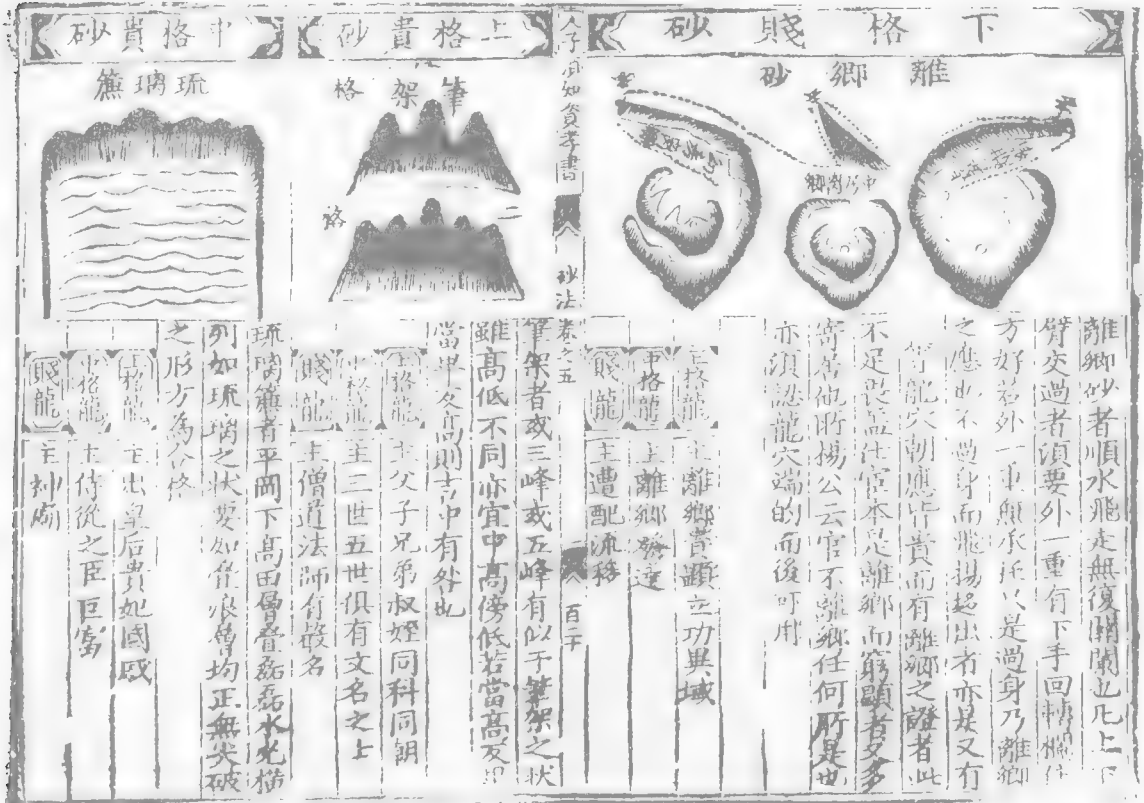 下格賤砂
離鄉砂
離鄉砂者順水飛走無復關闌也凡上下
臂交過者須要外一重有下手回轉攔住
方好若外一重無承托只是過身乃離鄉
之應也不過身而飛揚起出者亦是又有
龍穴朝應皆貴而有離鄉之證者此
不足畏蓋仕宦本是離鄉而窮顯者多多
寄居他所楊公云官不離鄉任何所是也
亦須認龍穴端的而後可用
上格龍 主離鄉貴顯立功異域
中格龍 主離鄉發達
賤龍 主遭配流移
人子須知資孝書
砂法 卷之五
百二十
上格貴砂
筆架格
二格
筆架者或三峰或五峰有似于筆架之狀
雖高低不同亦宜中高傍低若當高反
當卑反高則吉中有外也
上格龍 主父子兄弟叔姪同科同朝
中格龍 主三世五世俱有文名之士
賤龍 主僧道法師有藝名
中格貴砂
琉璃簾
琉璃簾者平岡下高田層疊磊磊水光描
列如琉璃之狀要如疊浪勻均正無尖破
之形方為合格
上格龍 主出皇后貴妃國戚
中格龍 主侍從之臣巨富
賤龍 主神廟